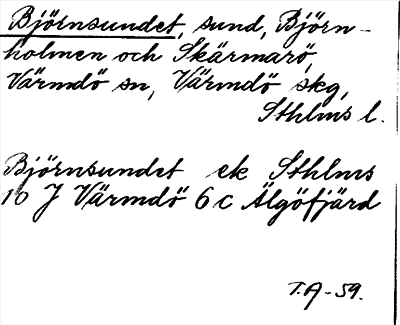 Björnsundet, sund, Björn-
holmen och Skärmarö,
Värmdö sn, Värmdö skg,
Sthlms l.
Björnsundet ek Sthlms
10 J Värmdö 6 c Älgöfjärd
T.A-59.